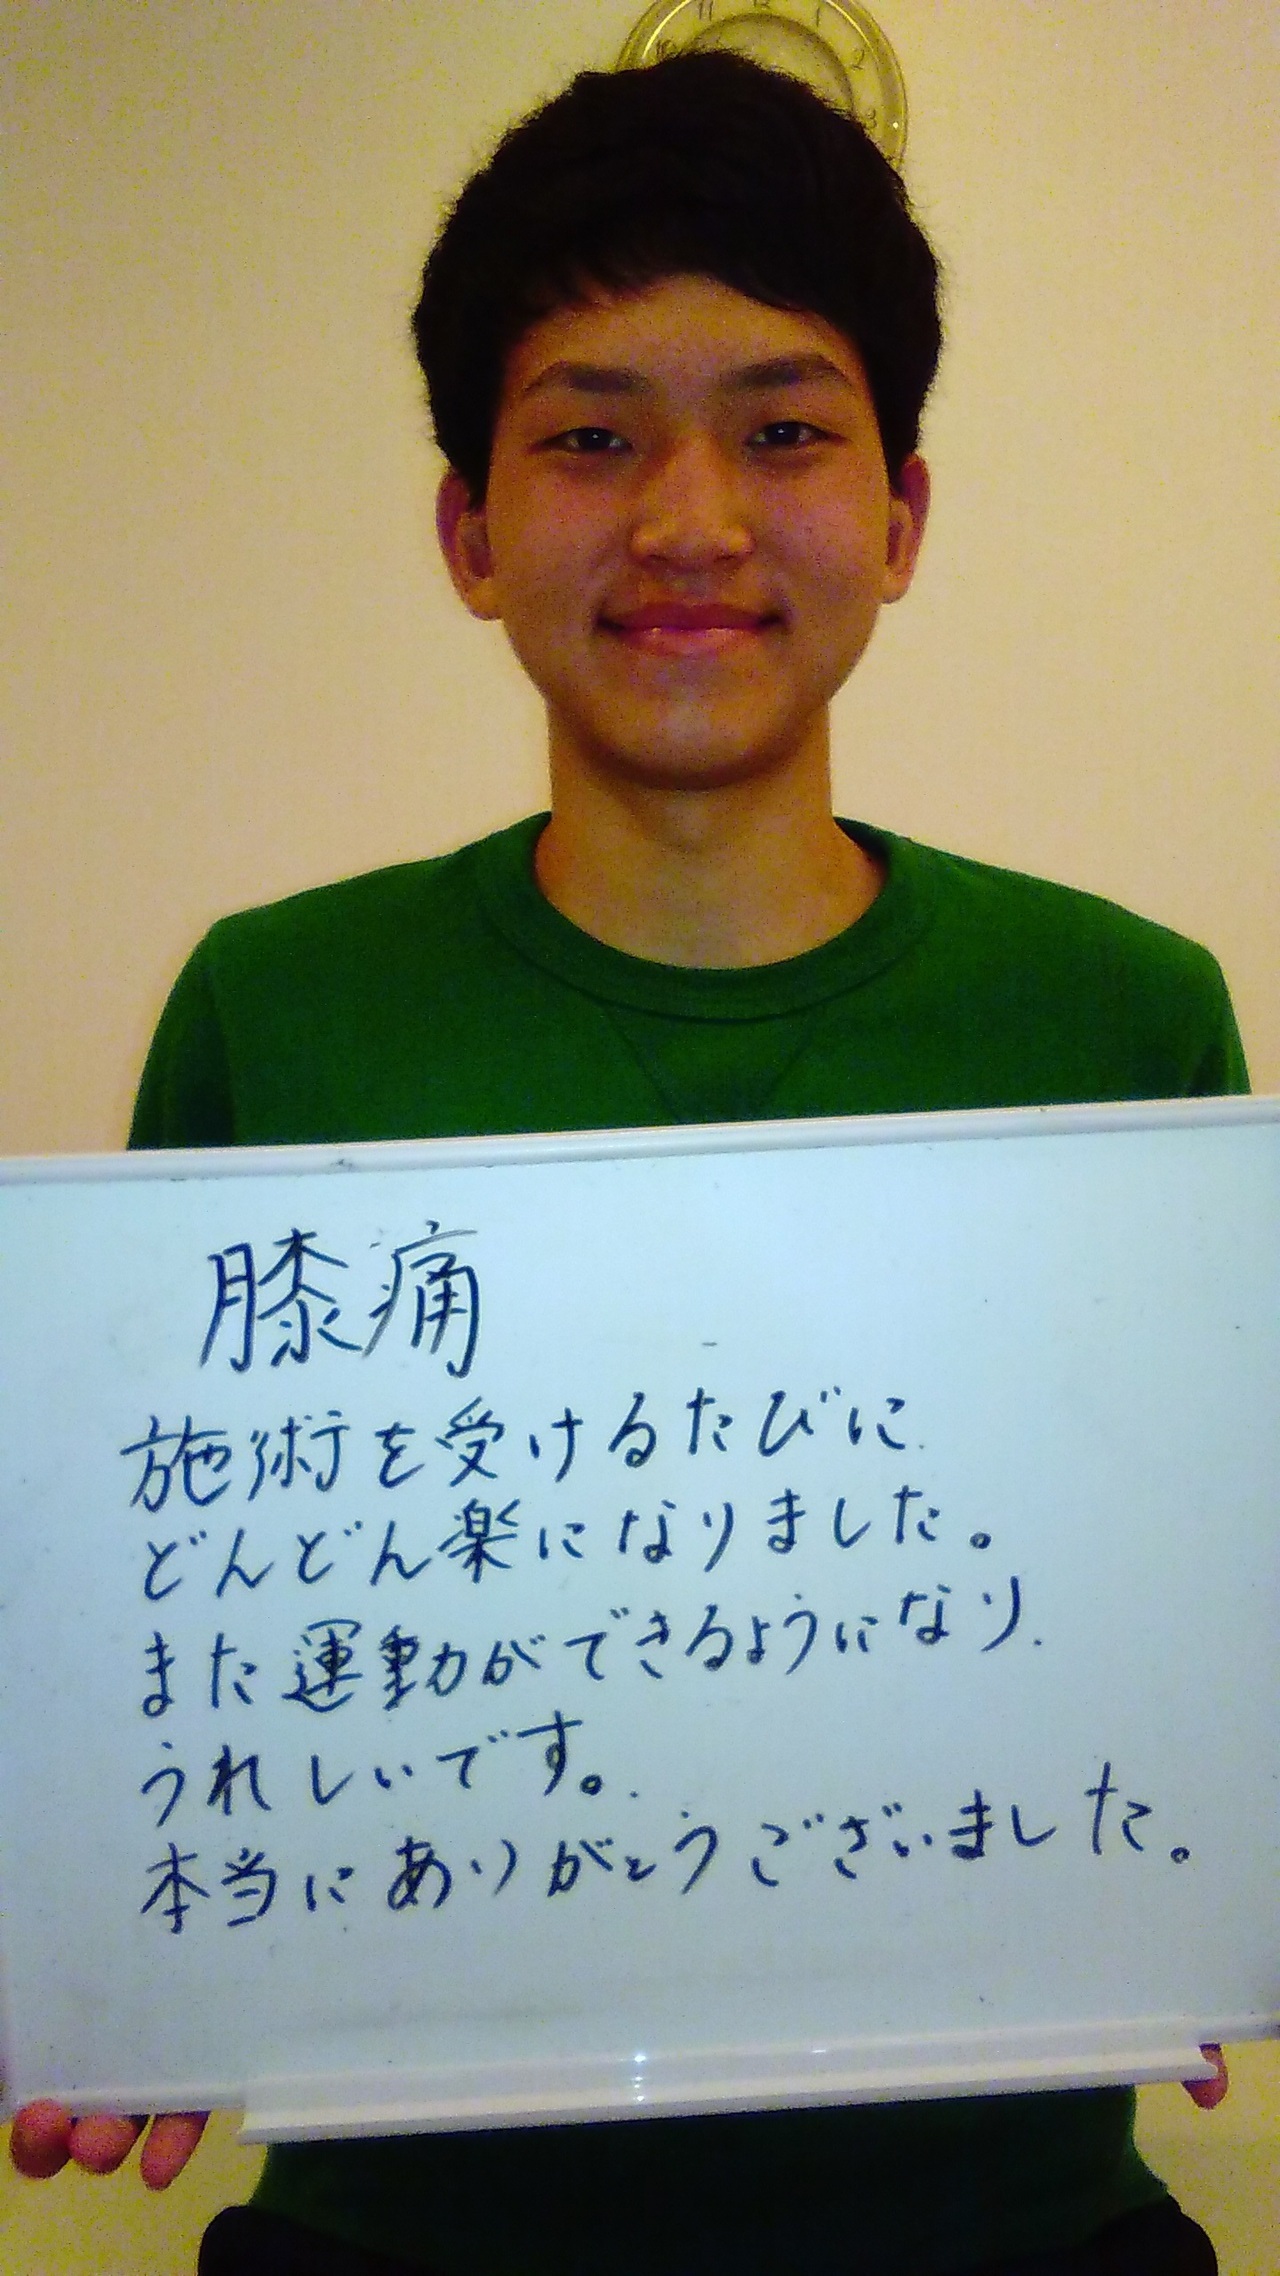 11 12 1
10 2
3
膝痛
施術を受けるたびに
どんどん楽になりました。
また運動ができるようになり
うれしいです。
本当にありがとうございました。